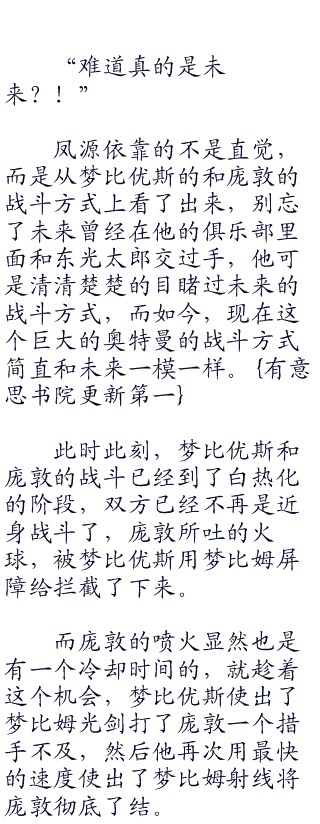 “难道真的是未
来？！”
凤源依靠的不是直觉，
而是从梦比优斯的和庞敦的
战斗方式上看了出来，别忘
了未来曾经在他的俱乐部里
面和东光太郎交过手，他可
是清清楚楚的目睹过未来的
战斗方式，而如今，现在这
个巨大的奥特曼的战斗方式
简直和未来一模一样。{有意
思书院更新第一}
此时此刻，梦比优斯和
庞敦的战斗已经到了白热化
的阶段，双方已经不再是近
身战斗了，庞敦所吐的火
球，被梦比优斯用梦比姆屏
障给拦截了下来。
而庞敦的喷火显然也是
有一个冷却时间的，就趁着
这个机会，梦比优斯使出了
梦比姆光剑打了庞敦一个措
手不及，然后他再次用最快
的速度使出了梦比姆射线将
庞敦彻底了结。